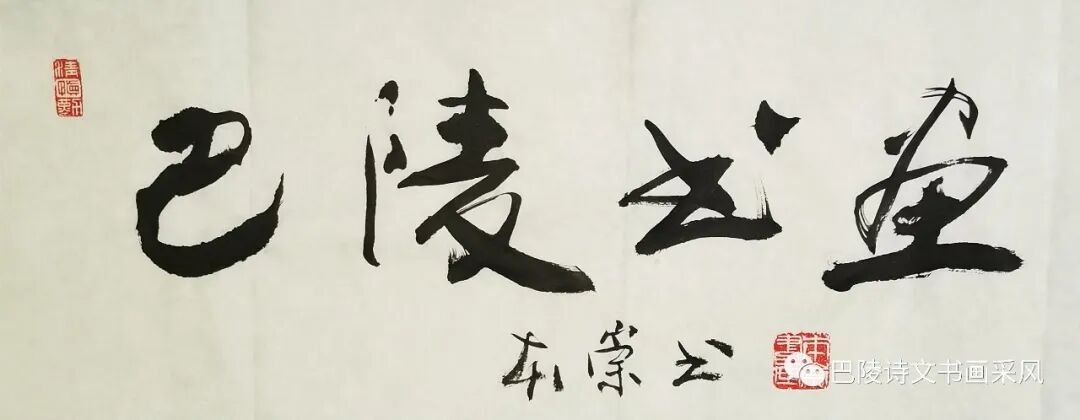 巴陵书画
本崇书
巴陵诗文书画采风